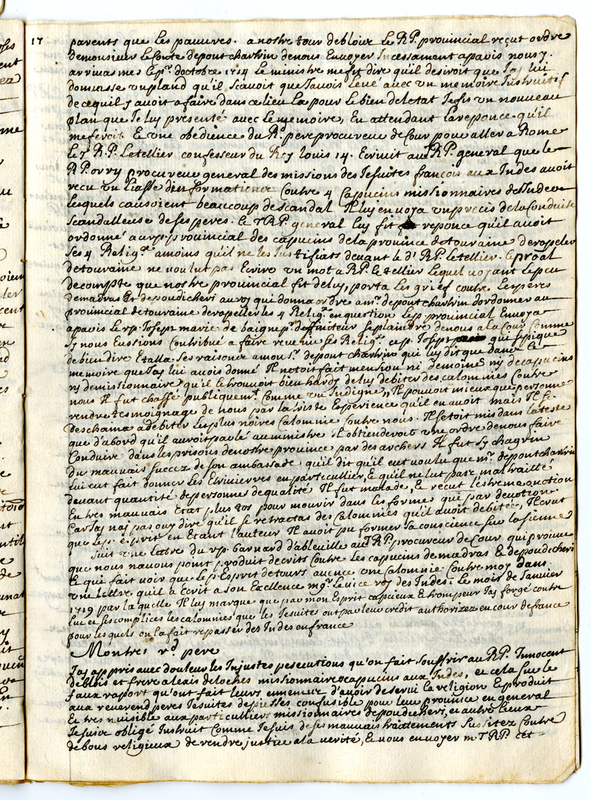 17
parents que les pauvres. a nostre tour de bloix le R.P. provincial reçut ordre
de monsieur le Conte de pontchartrin de nous envoyer Incessament a paris nous y.
arrivames le d'octobre 1714 le ministre me fit dire qu'il desiroit que Jay lui
donnasse un pland qu'il scavoit que J'avois levé avec un memoire Instructif
de ce qu'il y avoit a faire dans ce lieu La pour le bien de l'etat Je fis un nouveau
plan que Je luy presenté avec le memoire, En attendant la reponce qu'il
me feroit. E une obedience du R. pere procureur de Cour pour aller a Rome
le 7 R.P. Letellier confesseur du Roy Louis 14. Ecrivit au R.P. general que le
R.P. orry procureur general des missions des Jesuites françois aux Indes avoit
recu un liasse d'informations Contre 4 Capucins missionnaires des Indes
lesquels causoient beaucoup de scandal Il luy envoya un precis de la Conduite
scandalleuse de ses peres. le T.R.P. general luy fit reponce qu'il avoit
ordonné au r.p. provincial des capucins de la province de touraine de rapeler
ses 4 Relig. a moins qu'il ne les Justifiats devant le d. R.P. Letellier. le proal
de touraine ne voulut pas Ecrire un mot a R.P. letellier Lequel voyant le peu
de compte que nostre provincial fit de luy, porta les griefs contre les peres
de madras et de poudicheri au roy qui donna ordre a mr de pontchartrin d'ordonner au
provincial de touraine de rapeller les 4 Relig. en question le p. provincial Envoya
a paris le r.p. Joseph marie de baigne pr. definiteur se plaindre de nous a la Cour Comme
sy nous Eussions Contribué a faire revenir les Relig. le p. Joseph qui se pique
de bien dire Etalla ses raisons a mr de pontchartrin qui luy dit que dans le
memoire que J'ay lui avois donné Il n'etoit fait mention ni de moine ny de capucins
ny de missionnaire qu'il le trouvoit bien hardy de luy debiter des calomnies contre
nous Il fut chassé publiquement Comme un Indigne, Il pouvoit mieux que personne
rendre temoignage de nous par la triste Experience qu'il en avoit mais Il se
deschaina a debiter les plus noires Calomnie Contre nous Il s'etoit mis dans la teste
que d'abord qu'il auroit parlé au ministre Il obtiendroit une ordre de nous faire
Conduire dans les prisons de nostre province par des archers Il fut sy chagrin
du mauvais succez de son ambassade qu'il dit qu'il eut voulu que mr. de pontchartrin
lui eut fait donner les Etrivierres en particullier, E quil ne lut pase maltraitté
devant quantité de personne de qualité. Il fut malade, E reçut l'extreme onction
En tres mauvais Etat plus tos pour mourir dans les formes que par devotion
Car J'ay nay pas ouy dire qu'il se retracta des Calomnies qu'il avoit debitée, Il crut
que le p. esprit en Etant l'auteur Il avoit pu former sa conscience sur la sienne
Suit une lettre du r.p. barnard d'abbeville au T.R.P. procureur de Cour qui prouve
que nous navons point produit decrits Contre les capucins de madras E de poudicheri
E qui fait voir que le p. Esprit de tours avence une Calomnie Contre moy dans
une lettre, quil a Ecrit a son Excellence mgr Le vice roy des Indes, le mois de Janvier
1719 par la quelle Il luy marque que par mon Esprit captieux E trompeur J'ay forgé contre
lui E ses complices les calomnies que les Jesuites ont par leur credit authorizez en cour de france
pour les quels on l'a fait repasser des Indes en france
Montres rd. pere
J'ay appris avec douleur les Injustes persecutions qu'on fait souffrir au R.P. Innocent
de blois et frere alexis de loches missionnaires capucins aux Indes, et cela sur le
faux raport qu'ont fait leurs ennemeux d'avoir deservi la religion E produit
aux reverend peres Jesuites des pieces confusible pour leur province en general
E tres nuisible aux particulliers missionnaires de poudicheri, et autre Lieux
Je suis obligé Instruit Comme Je suis de ses mauvais traitements suscitez Contre
de bons religieux de rendre justice a la verité, E vous envoyer m. T.R.P. cet